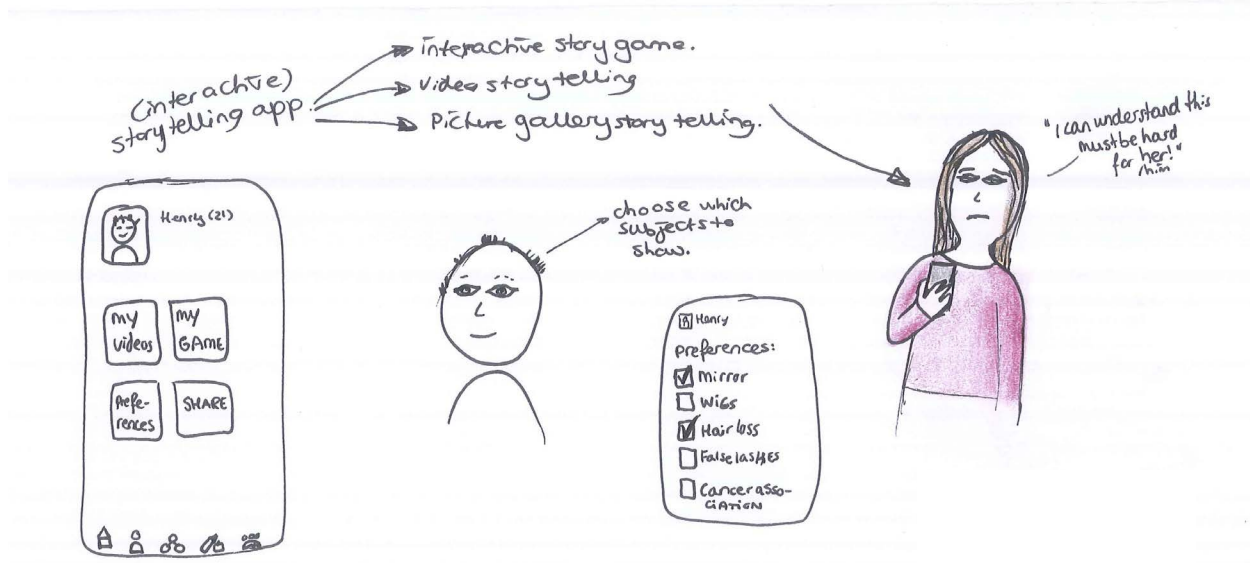 (interactive)
storytelling app.
interactive story game.
video story telling
Picture gallery story telling.
"I can understand this
must be hard
for her!"
him
Henry (21)
my
videos
my
GAME
Prefe-
rences
SHARE
choose which
subjects to
show.
Henry
preferences:
Mirror
Wigs
Hair loss
False lashes
Cancer asso-
ciation